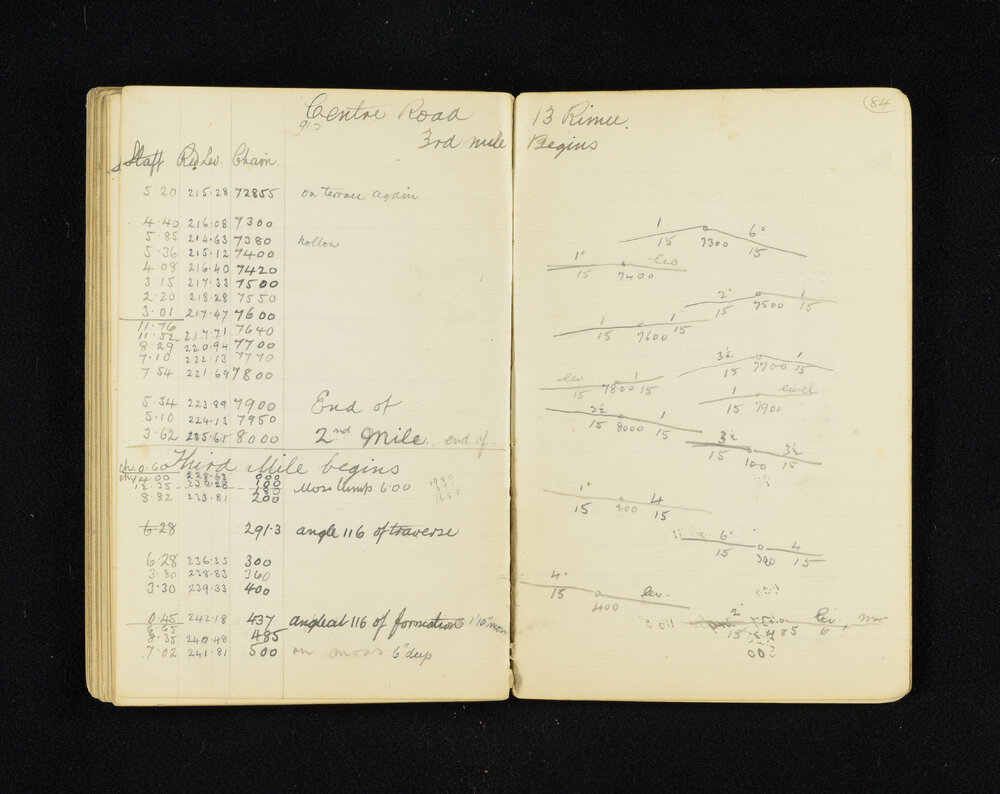 Centre Road
3rd mile
Staff Red Lev. Chain
5.20 215.28 72855 on terrace again
4.40 216.08 7300
5.85 214.63 7380 hollow
5.36 215.12 7400
4.08 216.40 7420
3.15 217.33 7500
2.20 218.28 7550
3.01 217.47 7600
11.76
11.52 217.71 7640
8.29 220.94 7700
7.10 222.13 7770
7.54 221.69 7800
5.34 223.89 7900 End of
5.10 224.13 7950
3.62 225.61 8000 2nd Mile. end of.
Third Mile begins
0.60
14.00 000
12.35 100 Moss lump 6.00
8.82 233.81 200
6.28 291.3 angle 116 of traverse
6.28 236.35 300
3.80 238.83 360
3.30 239.33 400
0.45 242.18 437 angleat 116 of formation 1'10"
8.35 240.48 485
7.02 241.81 500 on moss 6" deep
84
13 Rimu.
Begins
1 6°
15 7300 15
1° lev
15 7400
2° 1
15 7500 15
1 1
15 7600 15
3½ 1
15 7700 15
lev. 1
15 7800 15
1 level
15 7900
2½ 1
15 8000 15
3½ 3½
15 100 15
1° 4
15 200 15
6° 4
15 300 15
4° lev.
15 400
2° lev
15 485 6